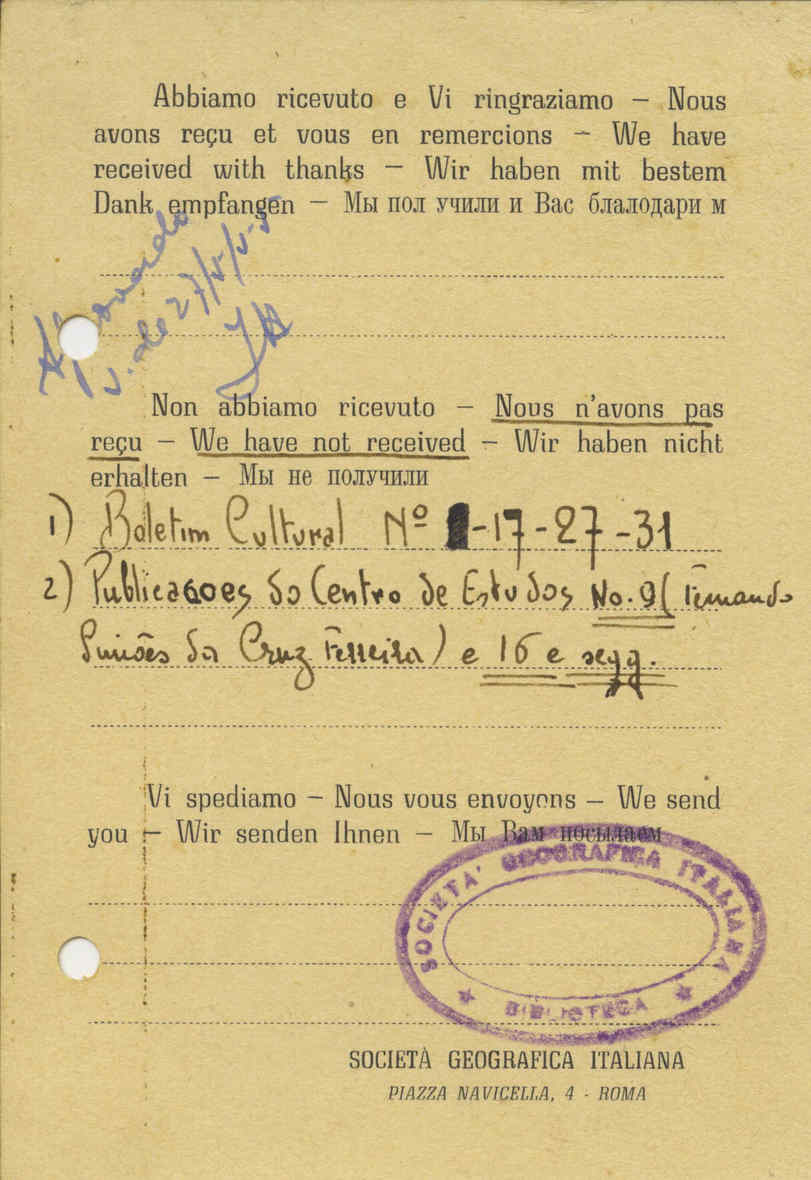 Abbiamo ricevuto e Vi ringraziamo – Nous
avons reçu et vous en remercions – We have
received with thanks – Wir haben mit bestem
Dank empfangen – Мы пол учили и Вас блалодари м
Non abbiamo ricevuto – Nous n'avons pas
reçu – We have not received – Wir haben nicht
erhalten – Мы не получили
1) Boletim Cultural Nº -17-27-31
2) Publicaçoes do Centro de Estudos No. 9 (
da Cruz Ferreira) e 16 e segg.
Vi spediamo – Nous vous envoyons – We send
you – Wir senden Ihnen – Мы Вам посылаем
SOCIETA' GEOGRAFICA ITALIANA
BIBLIOTECA
SOCIETÀ GEOGRAFICA ITALIANA
PIAZZA NAVICELLA, 4 - ROMA